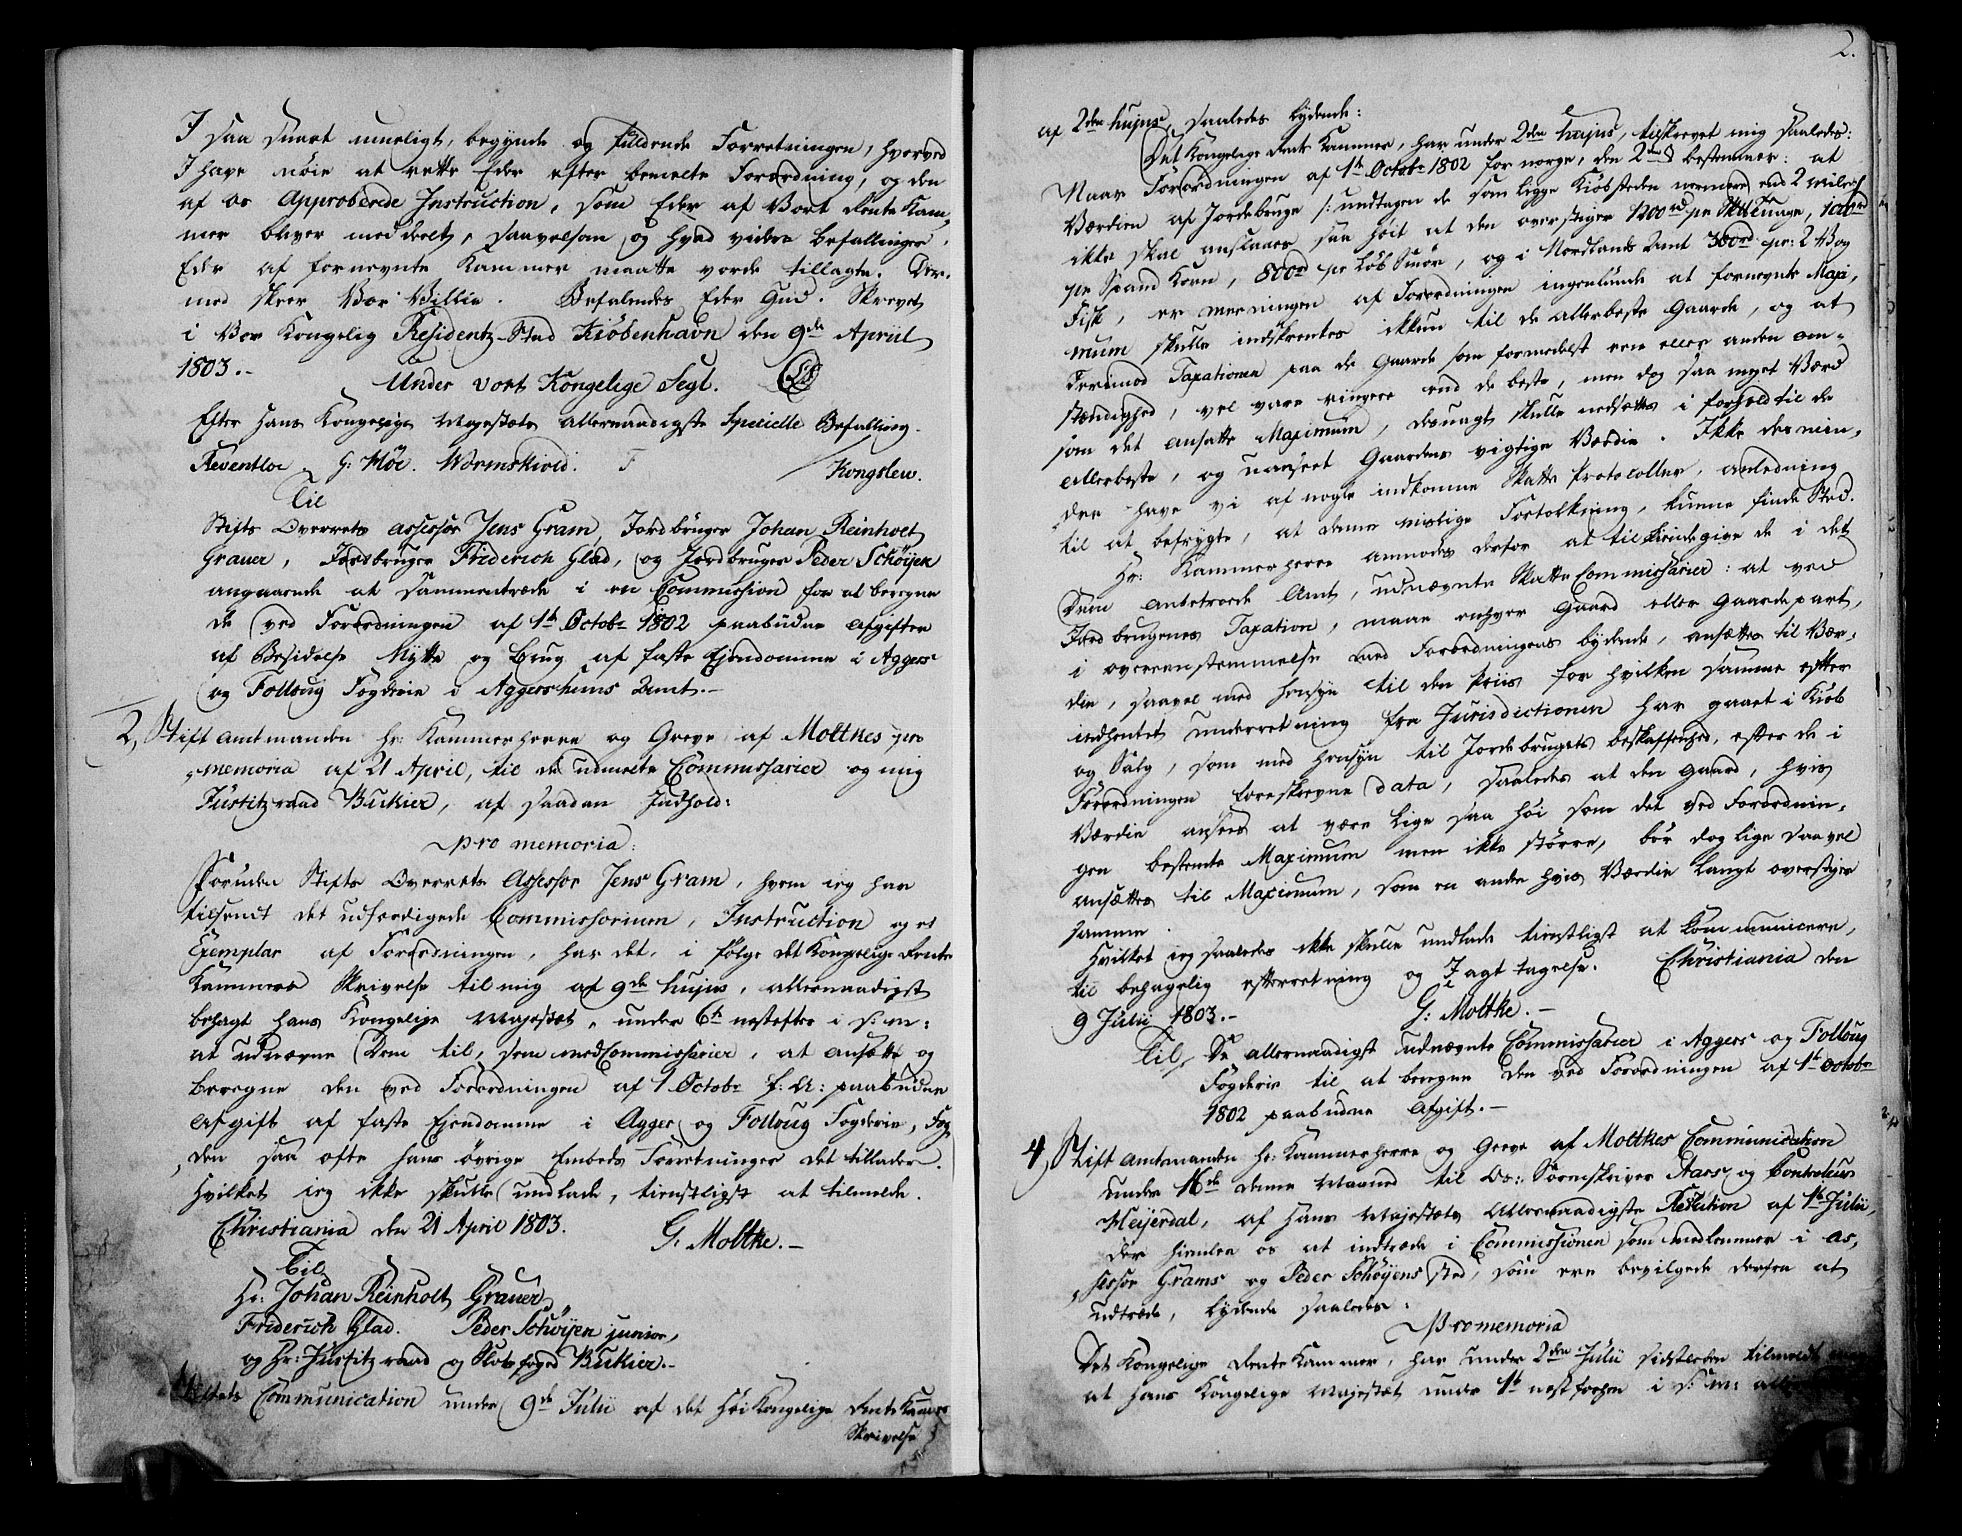 I saa snart mueligt, begynde og fuldende Forretningen, hvorved
I have nøie at rette Eder efter bemelte Forordning, og den
af os Approberede Instruction, som Eder af Vort Rente Kam-
mer bliver meddeelt, saavelsom og hvad videre befallinger,
Eder af fornevnte Kammer maatte vorde tillagte. Der-
med skeer Vor Villie. Befalendes Eder Gud. Skrevet
i Vor Kongelig Residentz-Stad Kiöbenhavn den 9de April
1803.-
Under vort Kongelige Segl. LS
Efter Hans Kongelige Majestæts allernaadigste Specielle Befalling.
Reventlov G: Möe. Wormskiold. Kongslew.
Til
Stifts Overrets Assessor Jens Gram, Jordbruger Johan Reinholt
Grauer, Jordbruger Friderich Glad, og Jordbruger Peder Schöijen
angaaende at sammentræde i en Commission for at beregne
de ved Forordningen af 1te Octobr 1802 paabudne Afgifter
af Besidelse Nytte og Brug af faste Ejendomme i Aggers
og Folloug Fogderie i Aggershuus Amt.-
2, Stiftamtmanden Hr: Kammerherre og Greve af Moltkes pro
memoria af 21 April, til de udmelte Commissarier og mig
Justitzraad Bukier, af saadan Indhold:
pro memoria:
Foruden Stifts Overrets Assessor Jens Gram, hvem ieg har
tilsendt det udferdigede Commissorium, Instruction og et
Exemplar af Forordningen, har det, i følge det Kongelige Rente
Kammers Skrivelse til mig af 9de hujus, allernaadigst
behagt Hans Kongelige Majestæt, under 6te nestefter i d: m:
at udnævne Dem til, som medCommissarier, at ansætte og
beregne den ved Forordningen af 1 Octobr f: A: paabudne
Afgift af faste Ejendomme i Agger og Folloug Fogderie,
den saa ofte hans øvrige Embeds Forretninger det tillader.
Hvilket ieg ikke skulle undlade, tienstligst at tilmelde.
Christiania den 21 April 1803. G: Moltke.-
Til
Hr: Johan Reinholt Grauer,
Friderich Glad. Peder Schöijen junior,
og Hr: Justitzraad og Slotsfoged Bukier.-
Communication under 9de Julii af det Høi Kongelige Rente Kamers
Skrivelse
2.
af 2den hujus, saaledes lydende:
Det Kongelige Rente Kammer, har under 2den hujus, tilskrevet mig saaledes:
Naar Forordningen af 1te Octobr 1802 for Norge, den 2den § bestemmer: at
Værdien af Jordebruge /: undtagen de som ligge Kiøbstæden nærmere end 2 Mile :/
ikke skal ansættes saa høit at den overstiger 1200rd pr Skd Tunge, 100rd
pr Spand Korn, 800rd pr Løb Smør, og i Nordlands Amt 300rd pr: 2 Vog
Fisk, er meeningen af Forordningen ingenlunde at fornevnte Maxi,
mum skulle indskrænkes ikkun til de allerbeste Gaarde, og at
derimod Taxationen paa de Gaarde som formedelst een eller anden om-
stændighed, vel vare ringere end de beste, men dog saa meget værd
som det ansatte Maximum, desuagt skulle nedsættes i forhold til de
allerbeste, og uanseet Gaardens rigtige Værdie. Ikke desmin,
dre have vi af nogle indkomne Skatte Protocoller, anledning
til at befrygte, at denne urigtige Fortolkning, kunne finde Sted.
Hr: Kammerherre anmodes derfor at tilkiendegive de i det
Dem anbetroede Amt, udnævnte SkatteCommissarier: at ved
Jordbrugenes Taxation, maae enhver Gaard eller Gaardepart,
i overeenstemmelse med Forordningens bydende, ansættes til Vær-
die, saavel med hensyn til den Priis for hvilken samme efter
indhentet underretning fra Jurisdictionen har gaaet i Kiøb
og Salg, som med hensyn til Jordebrugets beskaffenhed, efter de i
Forordningen foreskrevne data, saaledes at den Gaard, hvis
Værdie ansees at være lige saa høi som det ved Forordnin-
gen bestemte Maximum men ikke større, bør dog lige saavel
ansættes til Maximum, som en anden hvis Værdie langt overstiger
samme.
Hvilket ieg saaledes ikke skulle undlade tienstligst at Communicere,
til behagelig efterretning og Iagttagelse. Christiania den
9 Julii 1803.- G: Moltke.-
Til, De allernaadigst udnævnte Commissarier i Aggers og Folloug
Fogderie til at beregne den ved Forordningen af 1te Octobr
1802 paabudne Afgift.-
4, Stiftamtmanden Hr: Kammerherre og Greve af Moltkes Communication
under 16de denne Maaned til Os: Sorenskriver Aars og Controleur
Meijerdal, af Hans Majestæts Allernaadigste Resolution af 1te Julii,
der hiemler os at indtræde i Commissionen som medlemmer i As,
sessor Grams og Peder Schöijens sted, som ere bevilgede derfra at
udtræde, lydende saaledes:
Pro memoria
Det Kongelige Rente Kammer, har under 2den Julii sidstleden tilmeldt
at Hans Kongelige Majestæt under 1te nestforhen i d: m: